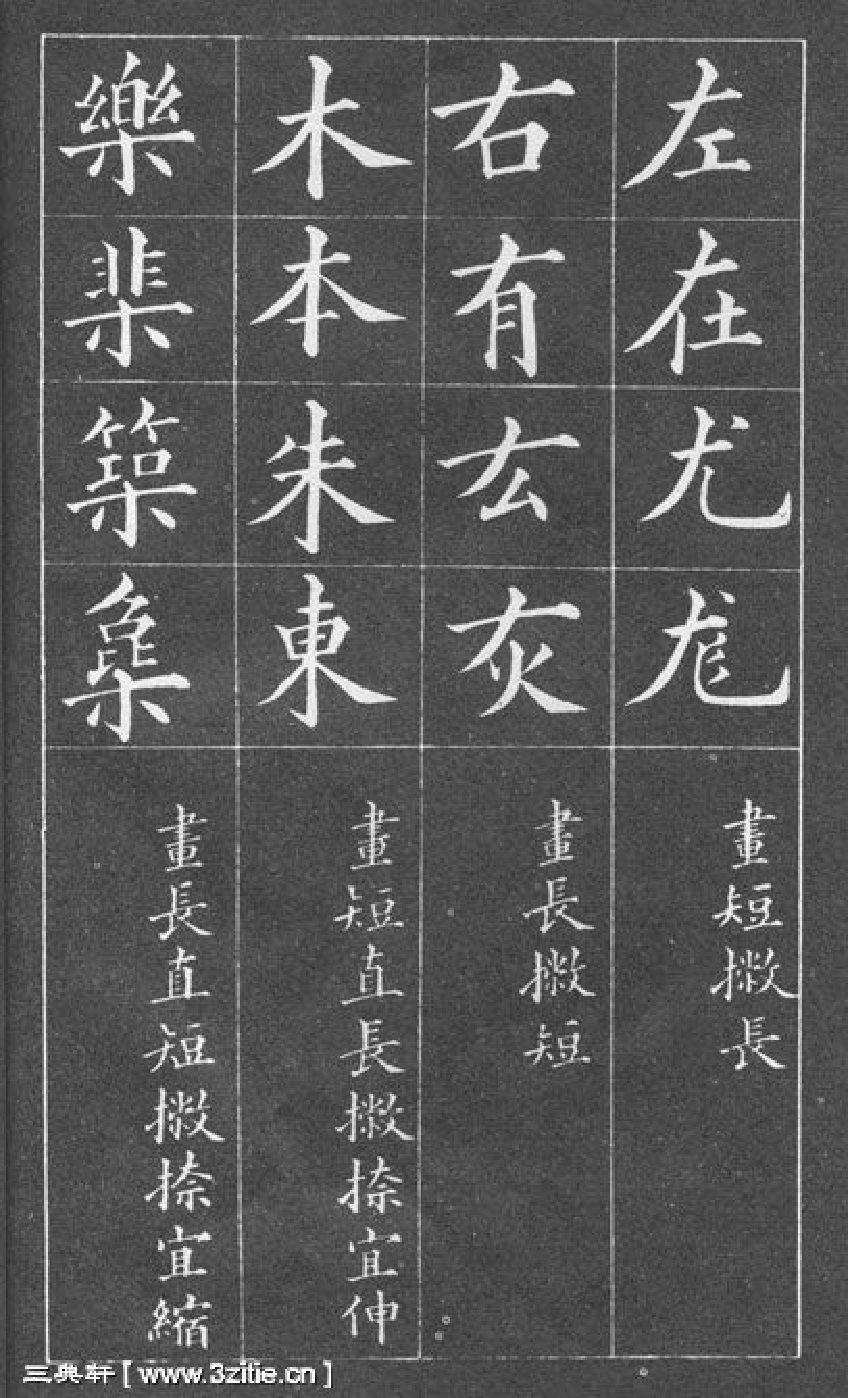 左在尤尨
畫短撇長
右有厷灰
畫長撇短
木本朱東
畫短直長撇捺宜伸
樂棐築
畫長直短撇捺宜縮
三典轩 [ www.3zitie.cn ]